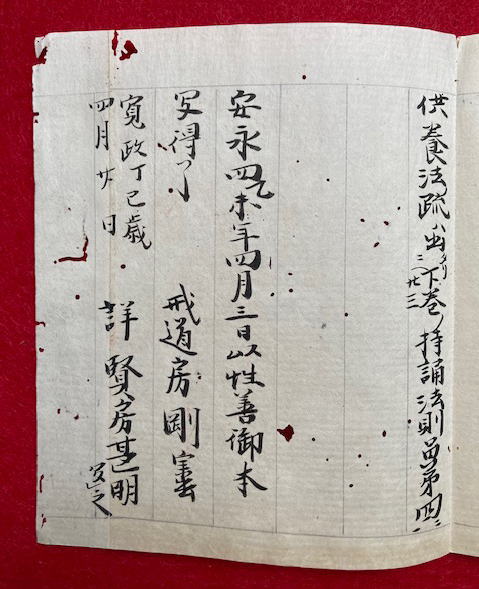 供養法疏出下巻ノ持誦法則品第四
二ノ廿三
安永四乙未年四月三日以性善御本
写得了 戒道房剛
寛政丁巳歳
四月廿日 詳賢房甚明写之